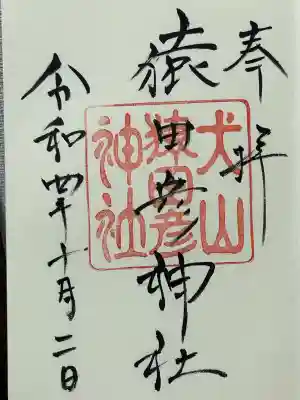 奉拝
猿田彦神社
令和四年十月二日
犬山
猿田彦
神社